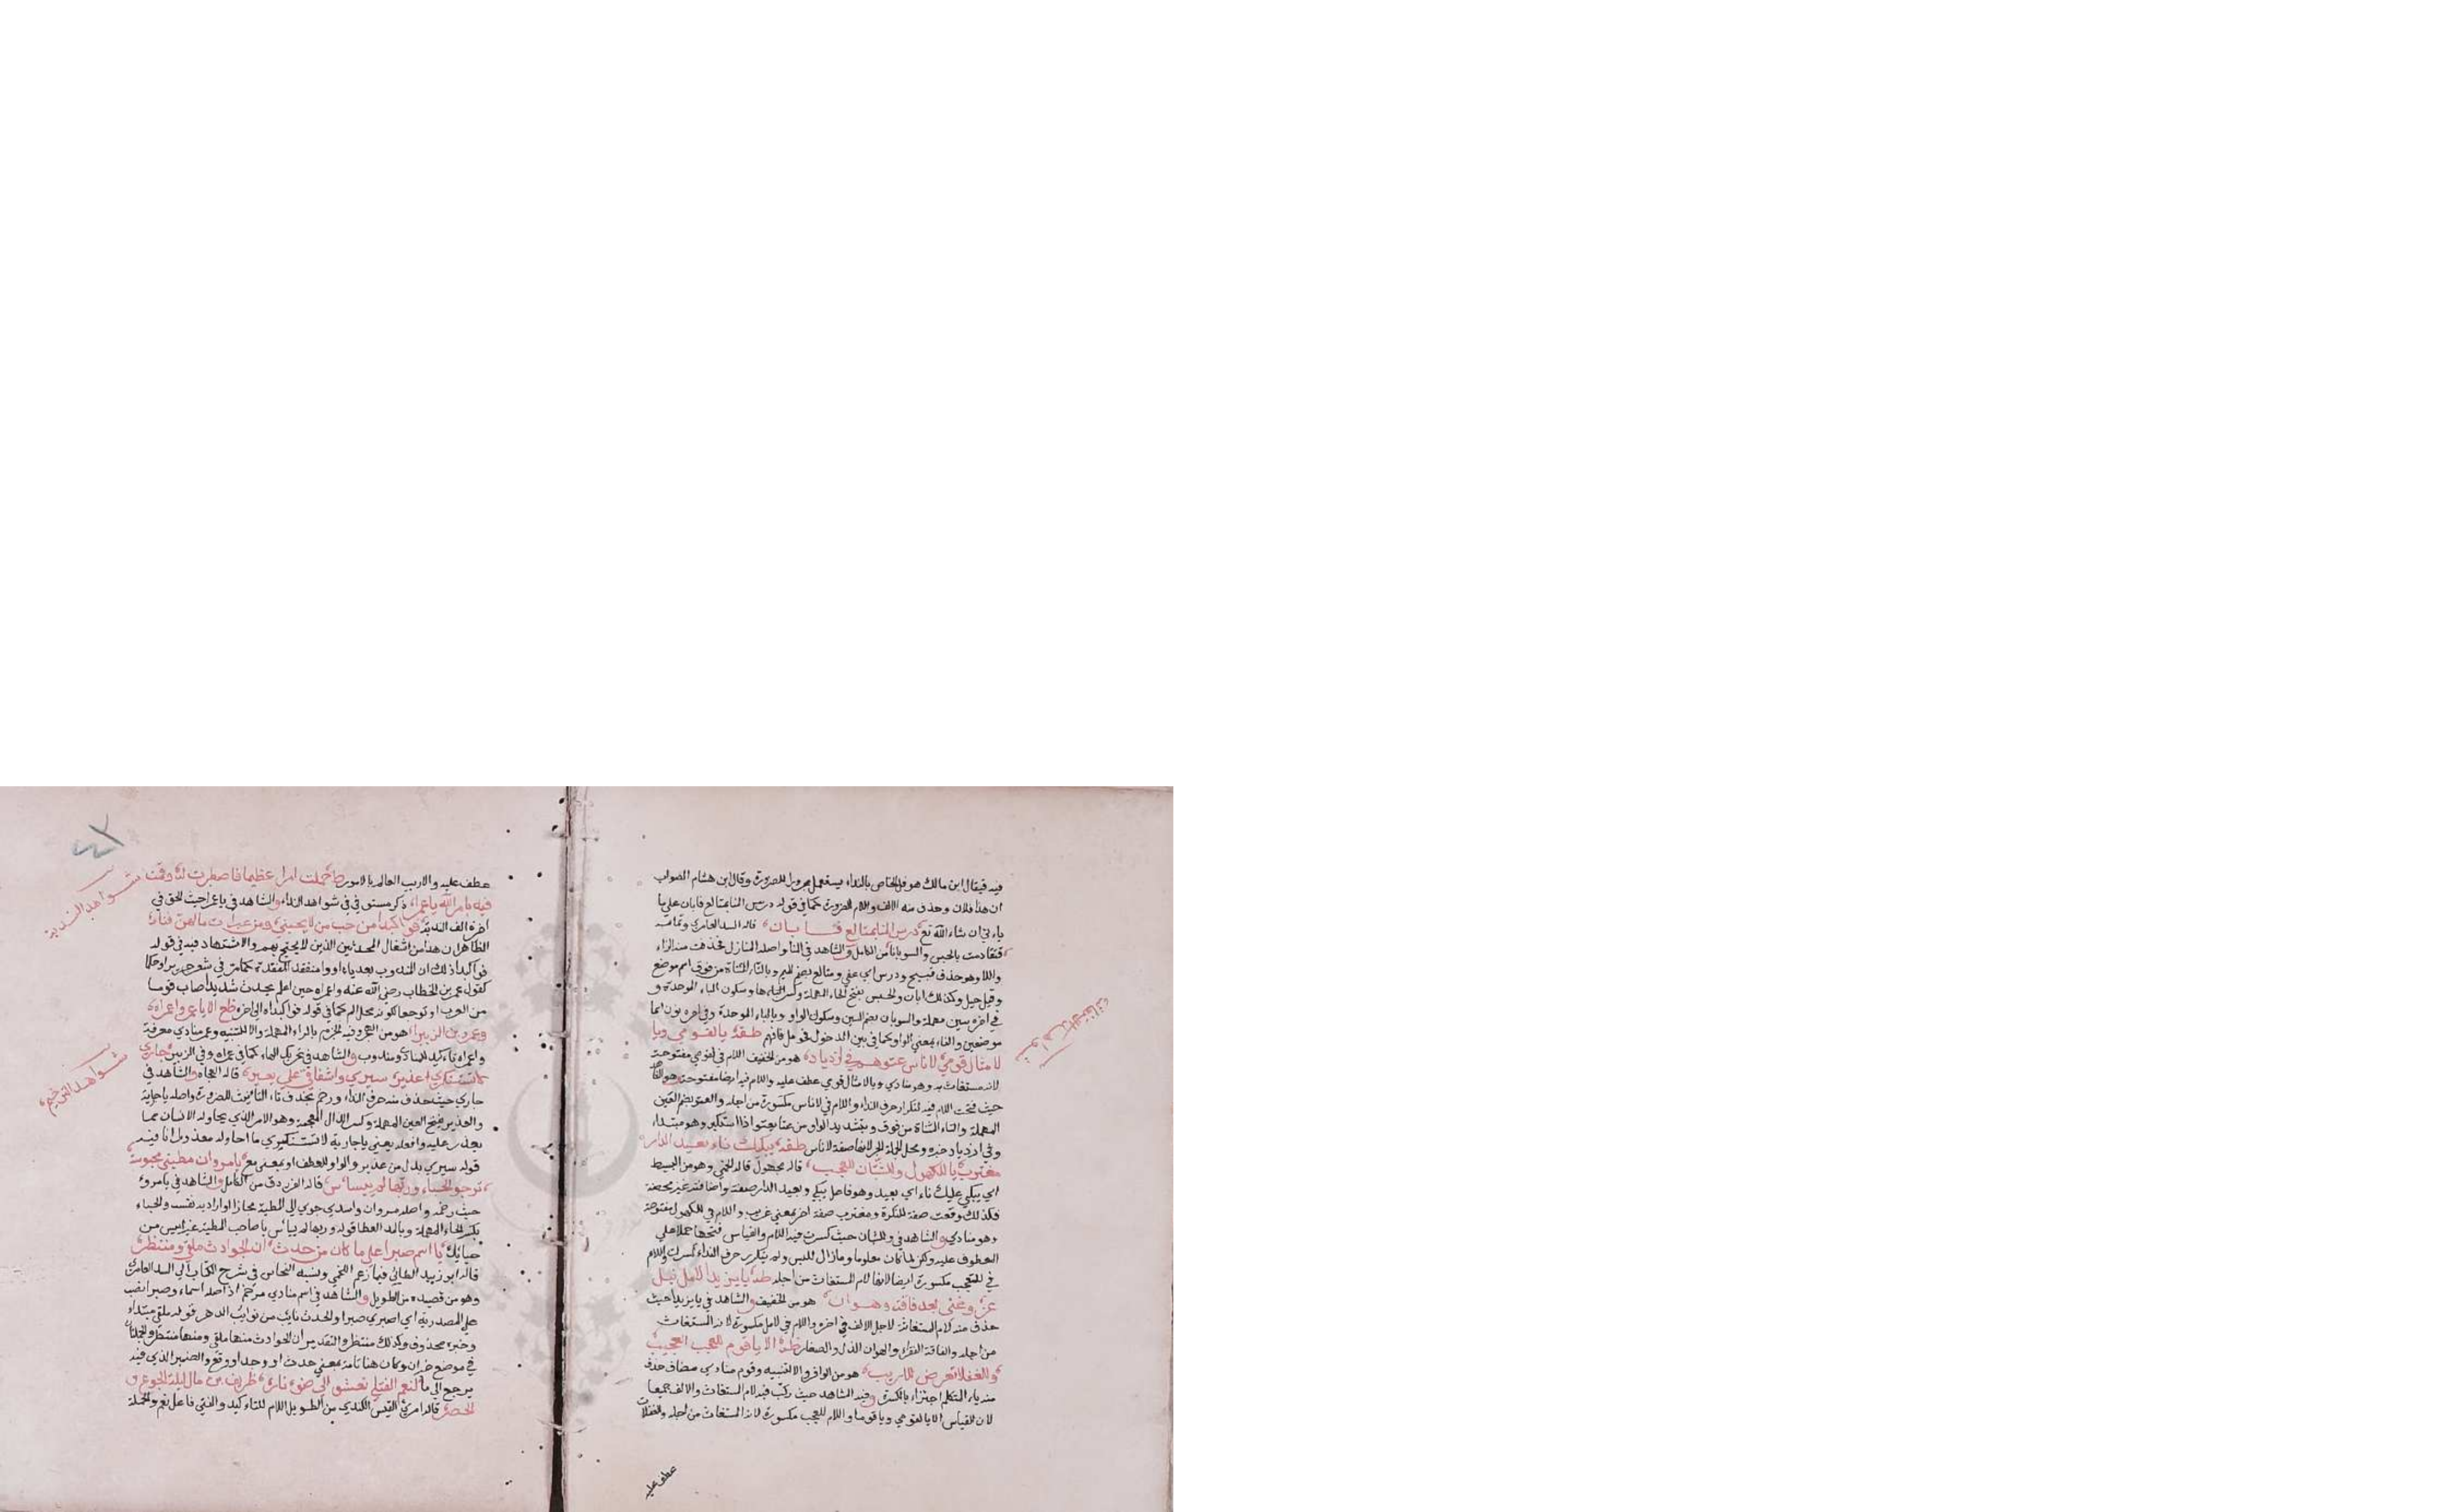 فيه فيقال ابن مالك هو في الخاص بالنداء يستعمل مجرورا للضرورة وقال ابن هشام الصواب
ان هذا فلان وحذف منه الالف واللام للضرورة كما في قوله درس المنا بمتالع فابان على ما
ياء تي ان شاء الله تع درس المنا بمتالع فابان قاله لبيد العامري وتمامه
فتقادمت بالحبس والسوبان من الكامل والشاهد في المنا واصله المنازل فحذفت منه الزاء
واللام وهو حذف قبيح ودرس اي عفى ومتالع بضم الميم وبالتاء المثناة من فوق اسم موضع
وقيل جبل وكذلك ابان والحبس بفتح الحاء المهملة وكسرها وسكون الباء الموحدة و
في اخره سين مهملة والسوبان بضم السين وسكون الواو وبالباء الموحدة وفي اخره نون اسما
موضعين والفاء بمعنى الواو كما في بين الدخول فحومل فافهم طقه يا لقومي ويا
لامثال قومي لاناس عتوهم في ازدياد هو من الخفيف اللام في لقومي مفتوحة
لانه مستغاث به وهو منادي ويا لامثال قومي عطف عليه واللام فيه ايضا مفتوحة
حيث فتحت اللام فيه لتكرار حرف النداء واللام في لاناس مكسورة من اجله والعتو بضم العين
المهملة والتاء المثناة من فوق وبتشديد الواو من عتا يعتو اذا استكبر وهو مبتداء
وفي ازدياد خبره ومحل الجملة الجر لانها صفة لاناس طقه يبكيك ناء بعيد الدار
مغترب يا للكهول وللشبان للعجب قاله مجهول قاله اللخمي وهو من البسيط
اي يبكي عليك ناء اي بعيد وهو فاعل يبكي وبعيد الدار صفته واضافته غير محضة
فلذلك وقعت صفة للنكرة ومغترب صفة اخرى بمعنى غريب واللام في للكهول مفتوحة
وهو منادي والشاهد في وللشبان حيث كسرت فيه اللام والقياس فتحها حملا على
المعطوف عليه ولكن لما كان معلوما وما زال للبس ولم يتكرر حرف النداء كسرت واللام
في للعجب مكسورة ايضا لانها لام المستغاث من اجله طه يا يزيدا لامل نيل
عز وغنى بعد فاقة وهوان هو من الخفيف والشاهد في يا يزيدا حيث
حذف منه لام المستغاث لاجل الالف في اخره واللام في لامل مكسورة لانه المستغاث
من اجله والفاقة الفقر والهوان الذل والصغار طه الا يا قوم للعجب العجيب
وللغفلات تعرض للاريب هو من الوافر والا للتنبيه وقوم منادي مضاف حذف
منه ياء المتكلم اجتزاء بالكسرة وفيه الشاهد حيث ركب فيه لام المستغاث والالف جميعا
لان القياس الا يا لقومي ويا قوما واللام للعجب مكسورة لانه المستغاث من اجله وللغفلات
عطف عليه
شواهد الاستغاثة
عطف عليه والاريب العالم بالامور طه حملت امرا عظيما فاصطبرت له وقمت
فيه بامر الله يا عمرا ذكر مستوفى في شواهد النداء والشاهد في يا عمرا حيث الحق في
اخره الف الندبة فوا كبدا من حب من لا يحبني ومن عبرات ما لهن فناء
الظاهر ان هذا من اشعار المحدثين الذين لا يحتج بهم والاستشهاد فيه في قوله
فوا كبدا وذلك ان المندوب بعد يا او وا متفقد كما مر في شعر جرير او حكما
كقول عمر بن الخطاب رضي الله عنه واعمراه حين اعلم بجدب شديد اصاب قوما
من العرب او توجعا لكونه محل الم كما في قوله فوا كبداه الى اخره ظح الا يا عمر واعمراه
وعمرو بن الزبيراه هو من الهزج بالراء المهملة والا للتنبيه وعمر منادي معرفة
واعمراه تاءكيد للمنادى ومندوب والشاهد في تحريك الهاء كما في عمراه وفي الزبيراه جاري
لا تستنكري عذيري سيري واشفاقي على بعيري قاله العجاج والشاهد في
جاري حيث حذف منه حرف النداء ورخم بحذف تاء التانيث للضرورة واصله يا جارية
والعذير بفتح العين المهملة وكسر الذال المعجمة وهو الامر الذي يحاوله الانسان مما
يعذر عليه وافعله يعني يا جارية لا تستنكري ما احاوله معذورا انا فيه
قوله سيري بدل من عذيري والواو للعطف او بمعنى مع يا مرو ان مطيتي محبوسة
ترجو الحباء وربها لم ييأس قاله الفرزدق من الكامل والشاهد في يا مرو
حيث رخمه واصله مروان واسدي الرجوى الى المطية مجازا واراد به نفسه والحباء
بكسر الحاء المهملة وبالمد العطا قوله وربها لم ييأس يا صاحب المطية غير ايس من
حبائك يا اسم صبرا على ما كان من حدث ان الحوادث ملقى ومنتظر
قاله ابو زبيد الطائي فيما زعم اللخمي ونسبه النحاس في شرح الكتاب الى لبيد العامري
وهو من قصيدة من الطويل والشاهد في اسم منادي مرخم اذ اصله اسماء وصبرا نصب
على المصدرية اي اصبري صبرا والحدث نائب من نوائب الدهر قوله ملقى مبتداء
وخبره محذوف وكذلك منتظر والتقدير ان الحوادث منها ملقى ومنها منتظر والجملتان
في موضع خبر ان وكان هنا تامة بمعنى حدث او وجد او وقع والضمير الذي فيه
يرجع الى ما لنعم الفتى تعشو الى ضوء ناره طريف بن مال ليلة الجوع و
الخصر قاله امرئ القيس الكندي من الطويل اللام للتاءكيد والفتى فاعل نعم والجملة
شواهد الندبة
شواهد الترخيم